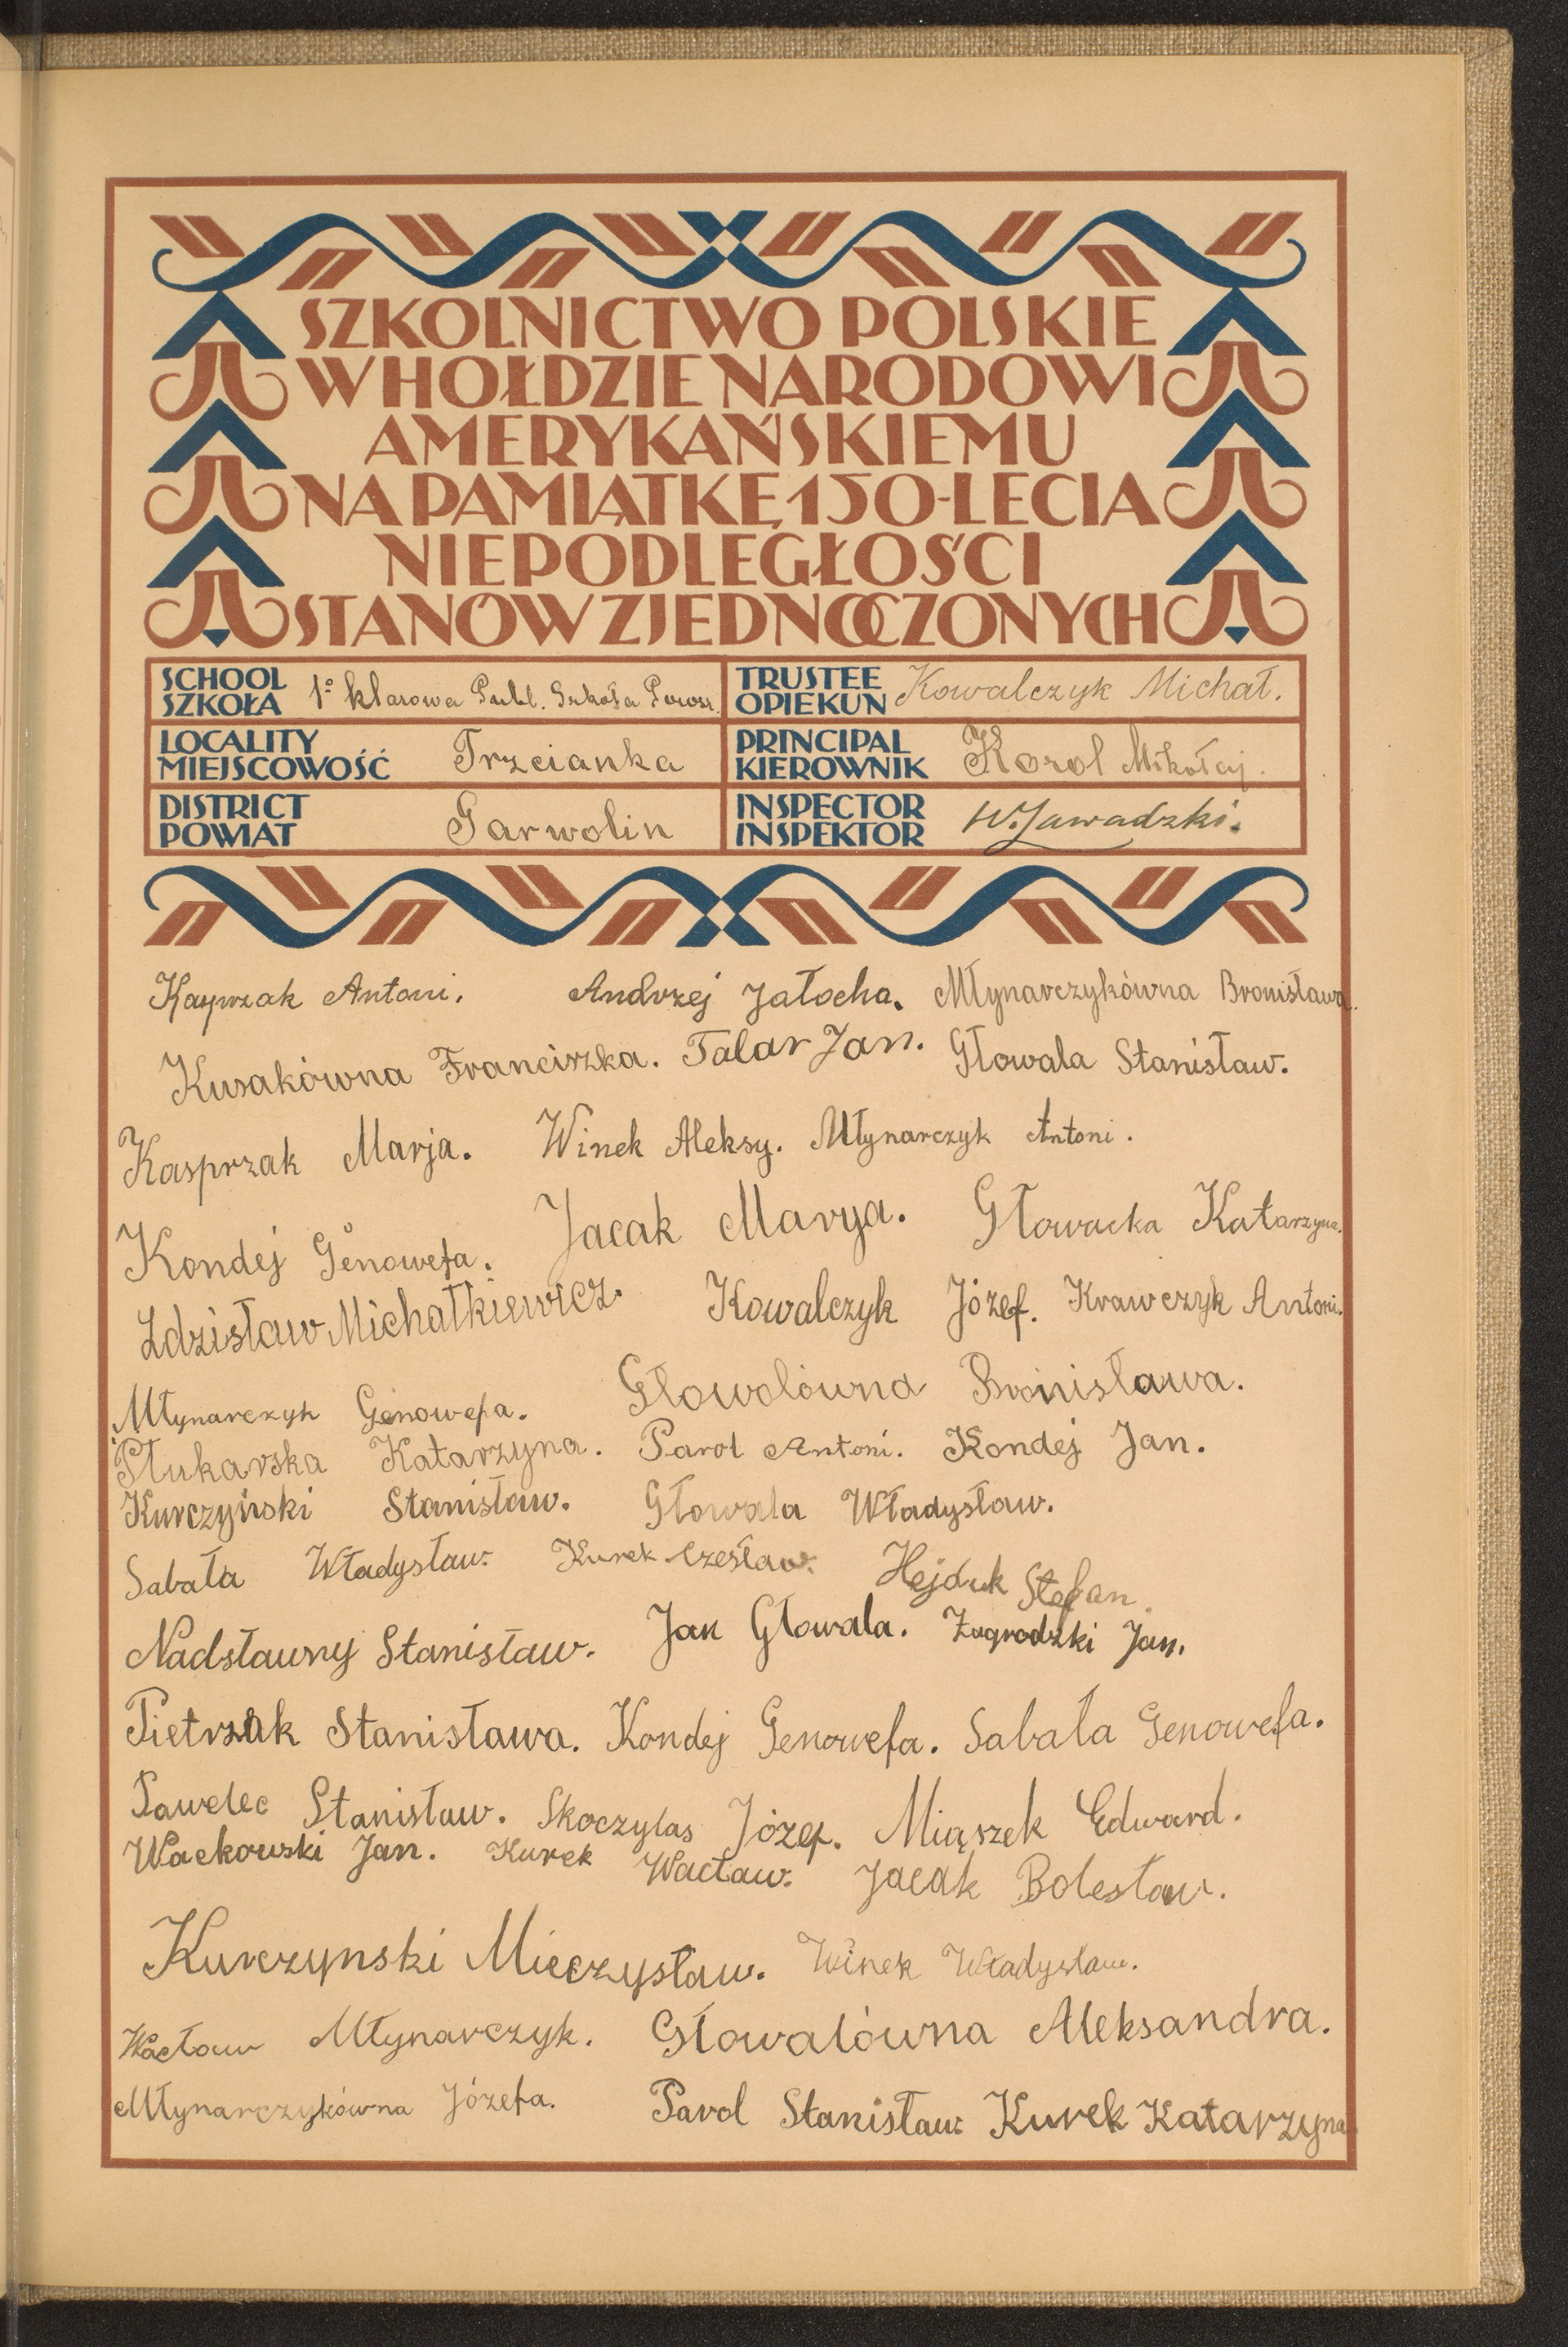 SZKOLNICTWO POLSKIE
W HOŁDZIE NARODOWI
AMERYKAŃSKIEMU
NA PAMIĄTKĘ 150-LECIA
NIEPODLEGŁOŚCI
STANÓW ZJEDNOCZONYCH
SCHOOL SZKOŁA 1º klasowa Publ. Szkoła Powsz.
TRUSTEE OPIEKUN Kowalczyk Michał.
LOCALITY MIEJSCOWOŚĆ Trzcianka
PRINCIPAL KIEROWNIK Korol Mikołaj.
DISTRICT POWIAT Garwolin
INSPECTOR INSPEKTOR W. Zawadzki.
Kasprzak Antoni. Andrzej Jałocha. Młynarczykówna Bronisława.
Kusakówna Franciszka. Talar Jan. Głowala Stanisław.
Kasprzak Marja. Winek Aleksy. Młynarczyk Antoni.
Kondej Genowefa. Jacak Marya. Głowacka Katarzyna.
Zdzisław Michałkiewicz. Kowalczyk Józef. Krawczyk Antoni.
Młynarczyk Genowefa. Głowolówna Bronisława.
Płukarska Katarzyna. Parol Antoni. Kondej Jan.
Kurczyński Stanisław. Głowala Władysław.
Sabała Władysław. Kurek Czesław. Hejduk Stefan.
Nadstawny Stanisław. Jan Głowala. Zagrodzki Jan.
Pietrzak Stanisława. Kondej Genowefa. Sabała Genowefa.
Pawelec Stanisław. Skoczylas Józef. Miąszek Edward.
Wackowski Jan. Kurek Wacław. Jacak Bolesław.
Kurczynski Mieczysław. Winek Władysław.
Wacław Młynarczyk. Głowalówna Aleksandra.
Młynarczykówna Józefa. Parol Stanisław. Kurek Katarzyna